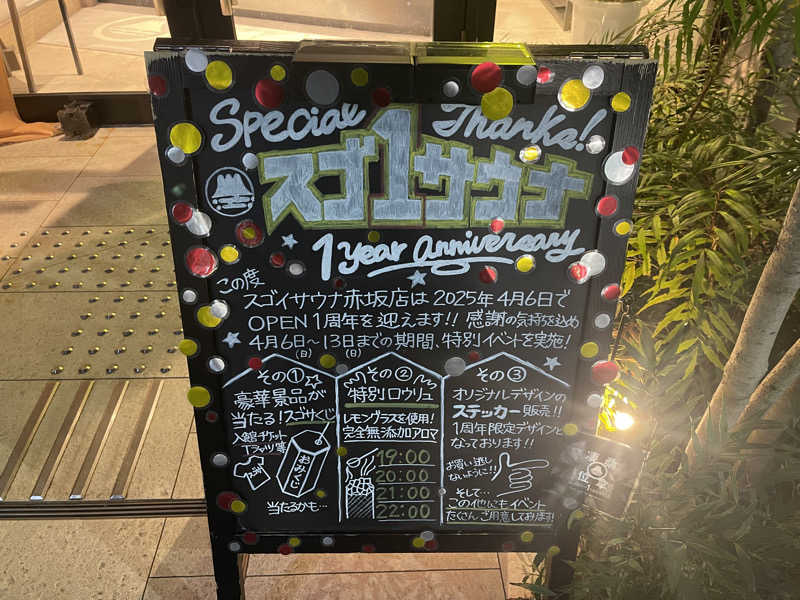 Special Thanks!
スゴ1サウナ
1 Year anniversary
この度
スゴイサウナ赤坂店は2025年4月6日で
OPEN1周年を迎えます!! 感謝の気持ちを込め
4月6日(日)～13日(日)までの期間、特別イベントを実施!
その①☆
豪華景品が
当たる!スゴサくじ
入館チケット
Tシャツ等
おみくじ
当たるかも…
その②
特別ロウリュ
レモングラスを使用!
完全無添加アロマ
19:00
20:00
21:00
22:00
その③
オリジナルデザインの
ステッカー販売!!
1周年限定デザインと
なっております!!
お買い逃し
ないように!!
そして…
この他にもイベント
たくさんご用意しております!